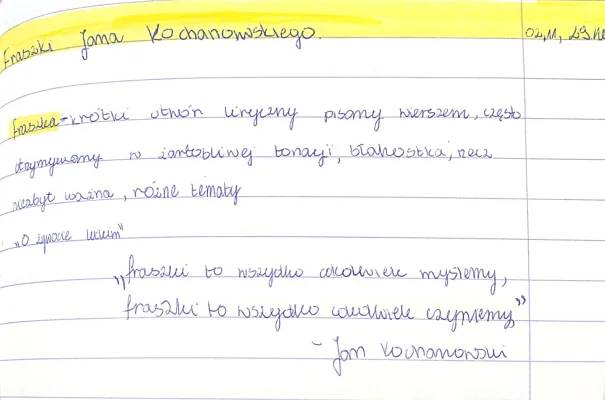 Fraszki Jana Kochanowskiego. 02.11,
fraszka - krótki utwór liryczny pisany wierszem, często
utrzymywany w żartobliwej tonacji, błahostka, rzecz
niezbyt ważna, różne tematy
"O żywocie ludzkim"
„fraszki to wszystko cokolwiek myślemy,
fraszki to wszystko cokolwiek czyniemy”
- Jan Kochanowski